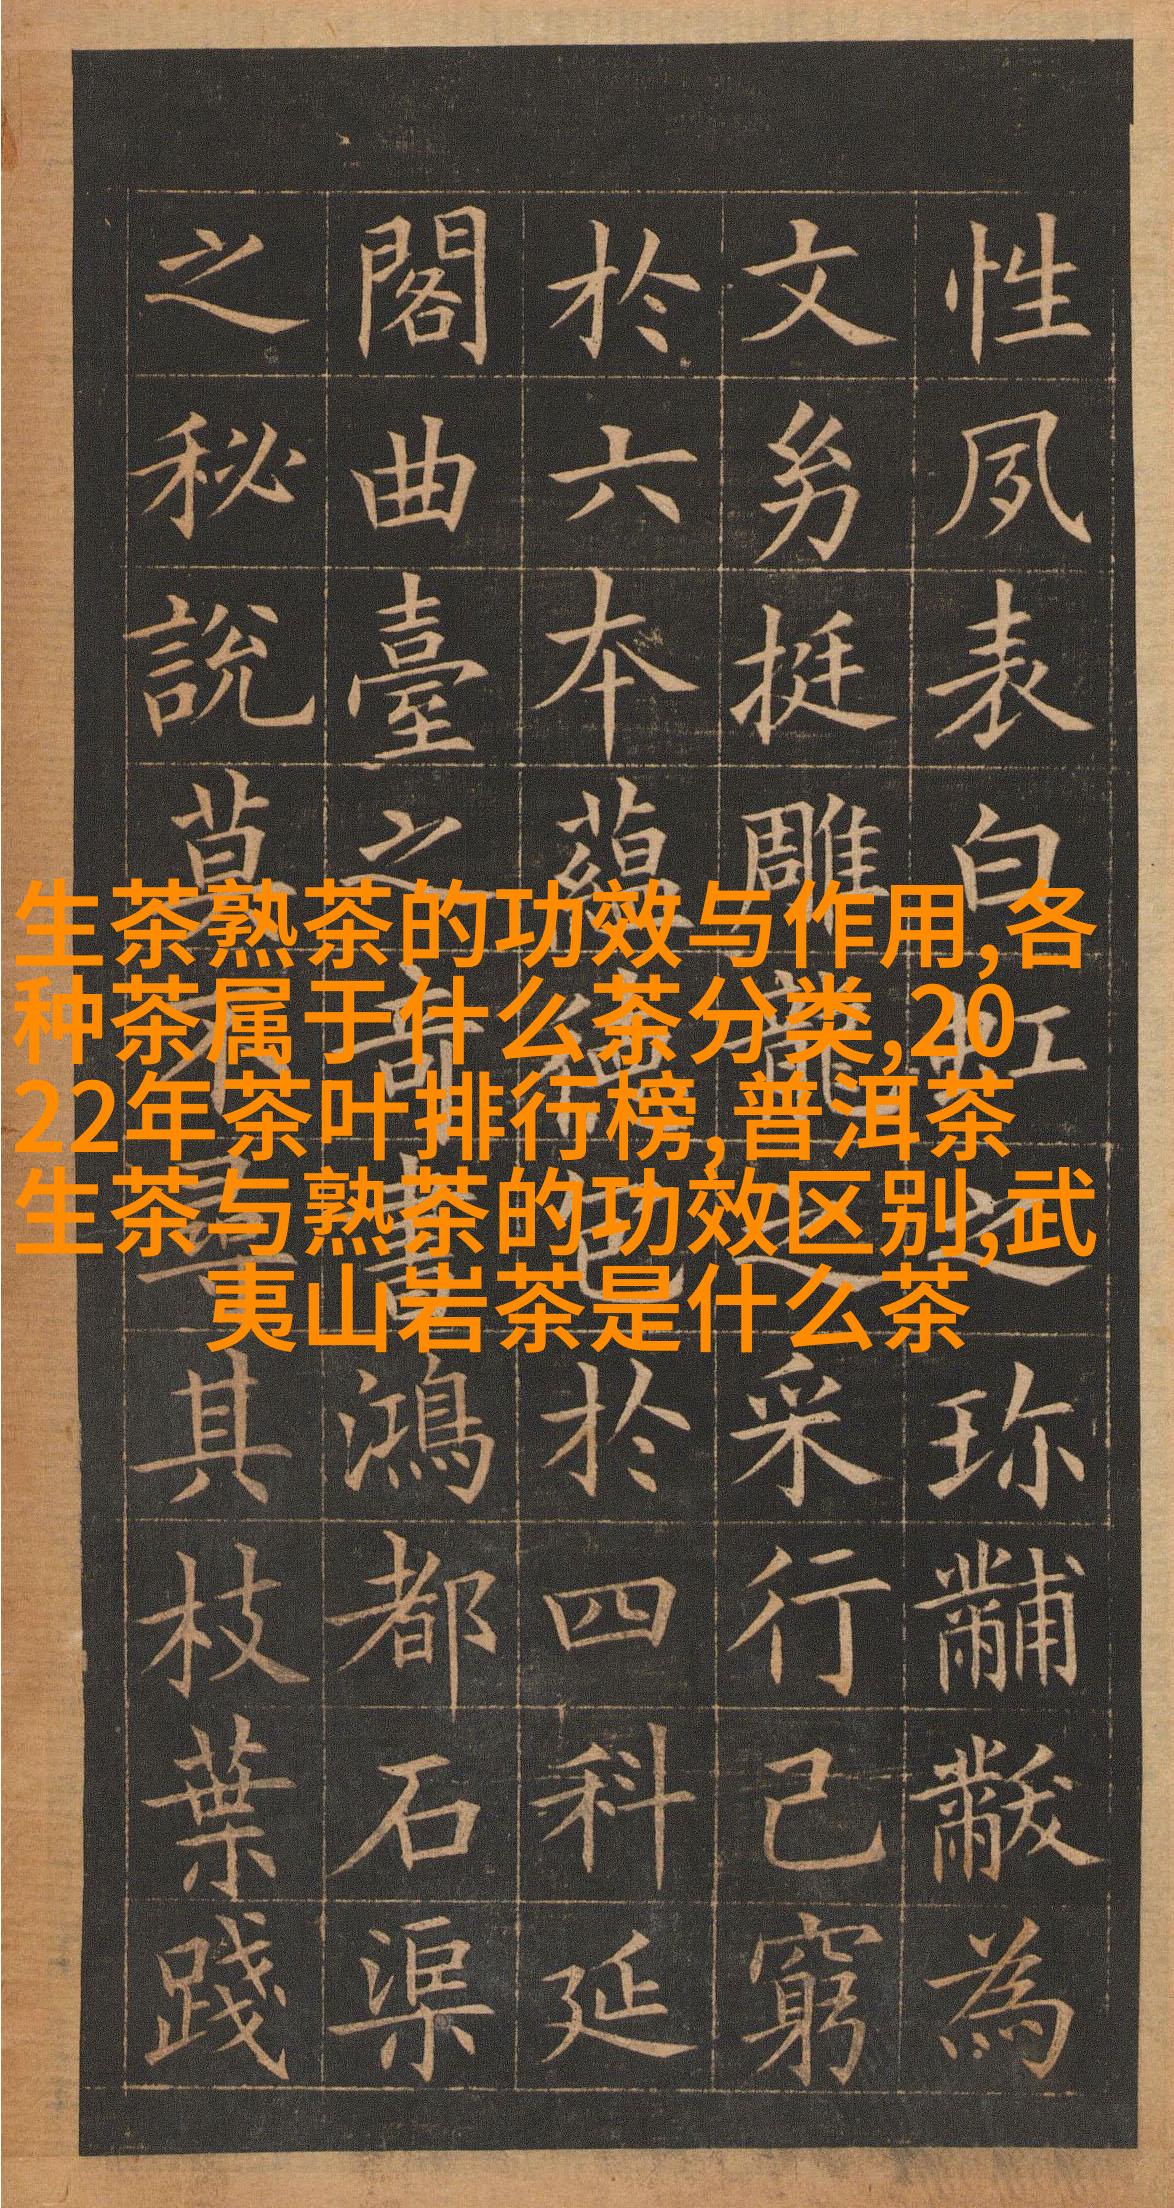 生茶熟茶的功效与作用,各
种茶属于什么茶分类,20
22年茶叶排行榜,普洱茶
生茶与熟茶的功效区别,武
夷山岩茶是什么茶
性夙表白虹之珍黼黻為
文㓜挺雕龍之采行己窮
於六本蘊德包於四科延
閣曲臺之奇書鴻都石渠
之秘說莫不尋其枝葉踐